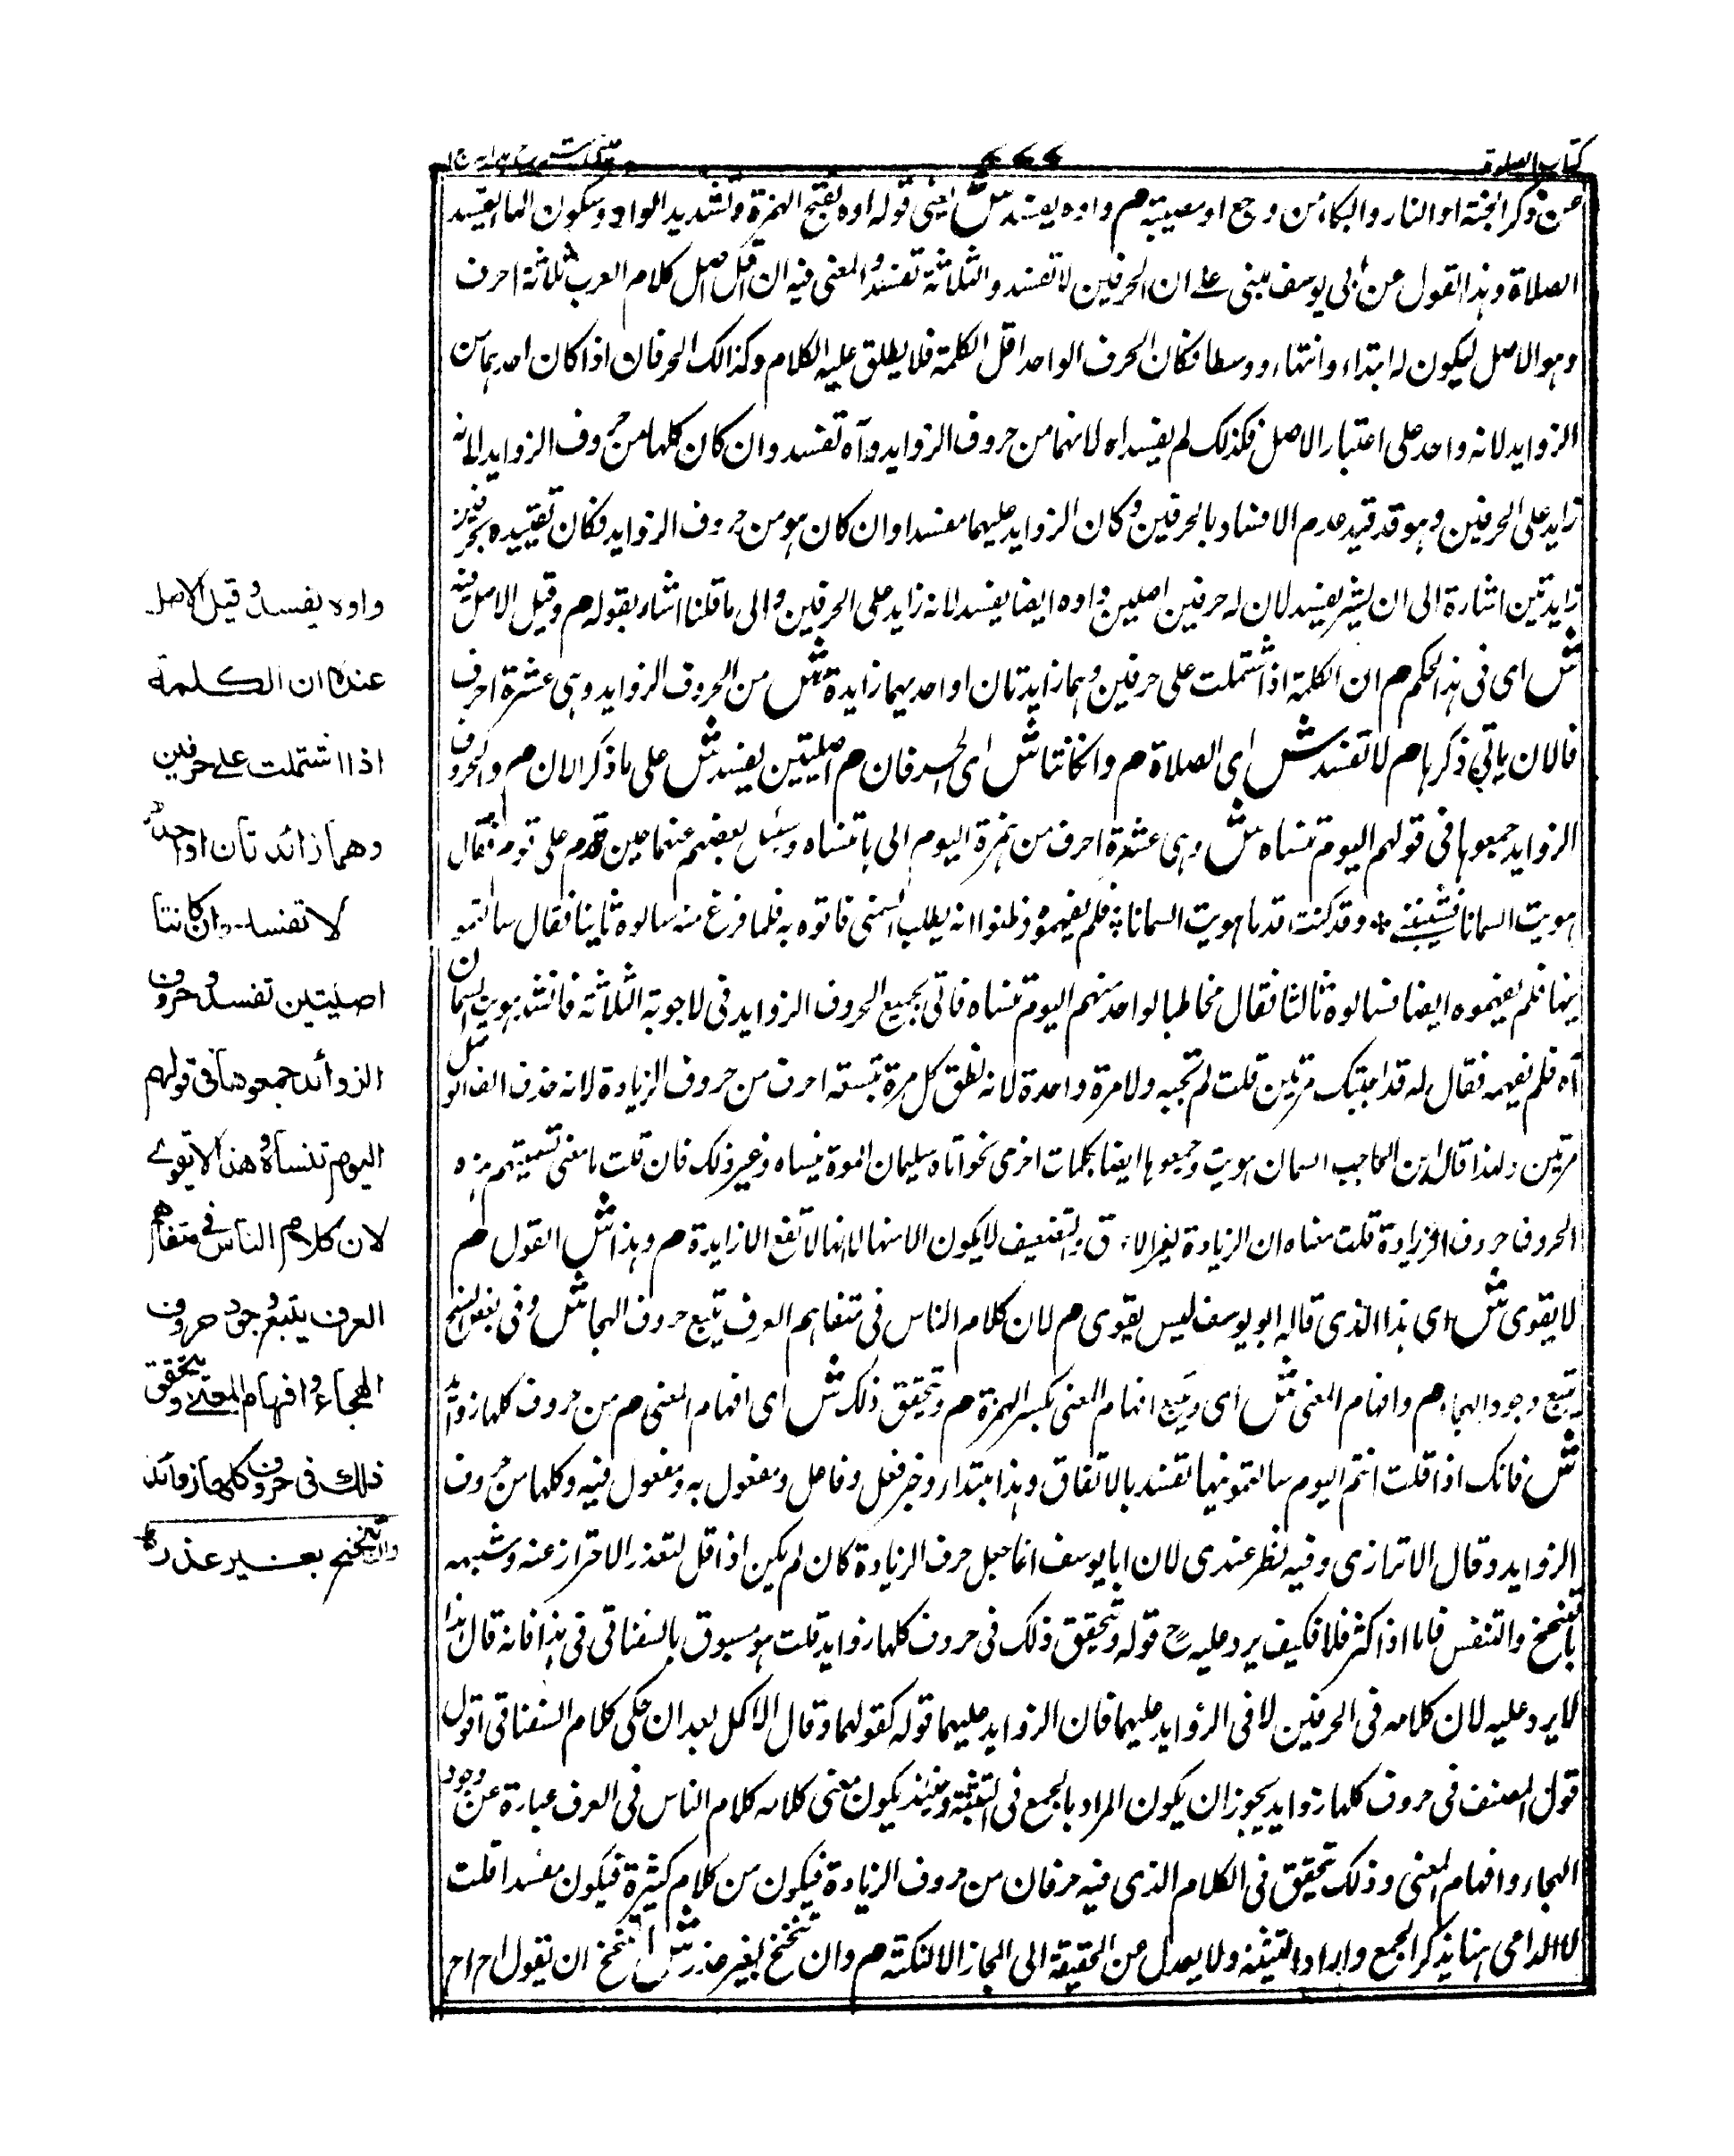 كتاب الصلوة
عينى شرح هدايه ج ا
عن ذكر الجنة او النار والبكاء من وجع او مصيبة م واوه يفسد ش يعنى قوله اوه بفتح الهمزة وتشديد الواو وسكون الهاء يفسد
الصلاة وهذا القول عن ابى يوسف مبنى على ان الحرفين لا تفسد والثلاثة تفسد والمعنى فيه ان اقل اصل كلام العرب ثلاثة احرف
وهو الاصل ليكون له ابتداء وانتهاء ووسطا فكان الحرف الواحد اقل الكلمة فلا يطلق عليه الكلام وكذالك الحرفان اذا كان احدهما من
الزوايد لانه واحد على اعتبار الاصل فكذلك لم يفسد اه لانهما من حروف الزوايد وآه تفسد وان كان كلها من حروف الزوايد لانه
زايد على الحرفين وهو قد قيد عدم الافساد بالحرفين وكان الزوايد عليهما مفسدا وان كان هو من حروف الزوايد فكان تقييده بحرفين
زايدتين اشارة الى ان يشير يفسد لان له حرفين اصليين واوه ايضا يفسد لانه زايد على الحرفين والى ما قلنا اشار بقوله م وقيل الاصل فيه
ش اى فى هذا الحكم م ان الكلمة اذا اشتملت على حرفين وهما زايدتان او احديهما زايدة ش من الحروف الزوايد وهى عشرة احرف
فالان ياتى ذكرها م لا تفسد ش اى الصلاة م وان كانتا ش اى الحرفان م اصليتين يفسد ش على ما ذكر الان م والحروف
الزوايد جمعوها فى قولهم اليوم تنساه ش وهى عشرة احرف من همزة اليوم الى هاء تنساه وسئل بعضهم عنها حين قدم على قوم فقال
هويت السمانا فشيبننى * وقد كنت قدما هويت السمانا * فلم يفهموه وظنوا انه يطلب السمنى فاتوه به فلما فرغ منه سالوه ثانيا فقال سالتمو
نيها فلم يفهموه ايضا فسالوه ثالثا فقال مخاطبا لواحد منهم اليوم تنساه فاتى بجميع الحروف الزوايد فى الاجوبة الثلاثة فانشد هويت السمان
آه فلم يفهمه فقال له قد اجبتك مرتين قلت لم تجبه ولا مرة واحدة لانه نطق كل مرة بتسعة احرف من حروف الزيادة لانه حذف الف الوصل
مرتين ولهذا قال ابن الحاجب السمان هويت وجمعوها ايضا بكلمات اخرى نحو اتاه سليمان الموة ينساه وغير ذلك فان قلت ما معنى تسميتهم هذه
الحروف حروف الزيادة قلت معناه ان الزيادة لغير الالحاق والتضعيف لا يكون الا منها لا انها لا تقع الا زايدة م وهذا ش القول م
لا يقوى ش اى هذا الذى قاله ابو يوسف ليس بقوى م لان كلام الناس فى متفاهم العرف يتبع حروف الهجا ش وفى بعض النسخ
يتبع وجود الهجاء م وافهام المعنى ش اى ويتبع افهام المعنى بكسر الهمزة م ويتحقق ذلك ش اى افهام المعنى م من حروف كلها زوائد
ش فانك اذا قلت انتم اليوم سالتمونيها تفسد بالاتفاق وهذا مبتدا وخبر فعل وفاعل ومفعول به ومفعول فيه وكلها من حروف
الزوايد وقال الاترازى وفيه نظر عندى لان ابا يوسف انما جعل حرف الزيادة كان لم يكن اذا قل لتعذر الاحتراز عنه وشبهه
بالتنحنح والتنفس فاما اذا كثر فلا فكيف يرد عليه ح قوله ويتحقق ذلك فى حروف كلها زوايد قلت هو مسبوق بالسغناقى فى هذا فانه قال هذا
لا يرد عليه لان كلامه فى الحرفين لا فى الزوايد عليهما فان الزوايد عليهما قوله كقولهما وقال الاكمل بعد ان حكى كلام السغناقى اقول
قول المصنف فى حروف كلها زوايد يجوز ان يكون المراد بالجمع فى التثنية وحينئذ يكون معنى كلامه كلام الناس فى العرف عبارة عن وجود
الهجاء وافهام المعنى وذلك يتحقق فى الكلام الذى فيه حرفان من حروف الزيادة فيكون من كلام كثيرة فيكون مفسدا قلت
لا الداعى هنا يذكر الجمع واراد التثنية ولا يعدل من الحقيقة الى المجاز الا لنكتة م وان تنحنح بغير عذر ش التنحنح ان يقول اح اح
واوه يفسد وقيل الاصل
عنده ان الكلمة
اذا اشتملت على حرفين
وهما زائدتان او احدهما
لا تفسد وان كانتا
اصليتين تفسد وحروف
الزوائد جمعوها فى قولهم
اليوم تنساه وهذا لا يقوى
لان كلام الناس فى متفاهم
العرف يتبع وجود حروف
الهجاء وافهام المعنى ويتحقق
ذلك فى حروف كلها زوائد
وان تنحنح بغير عذر